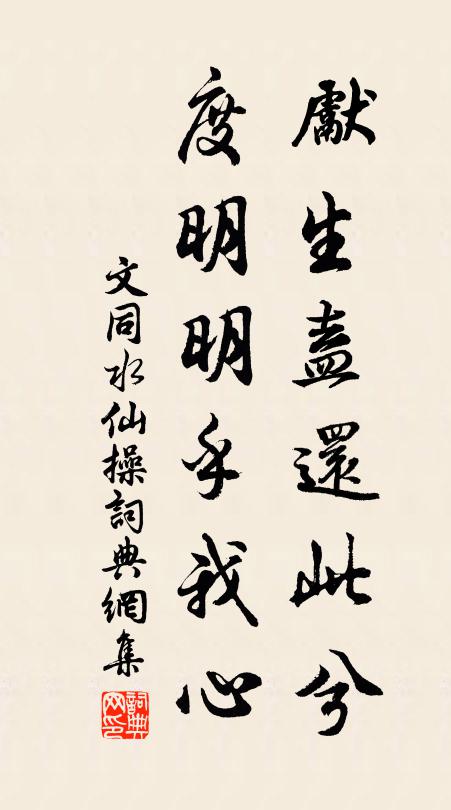 獻生盍還此兮
度明明乎我心
文同水仙操詞典網集
詞典网印